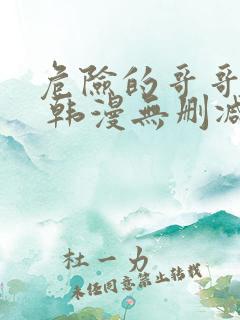 危險的哥哥
韩漫無删减
杜一力
未经同意禁止转载